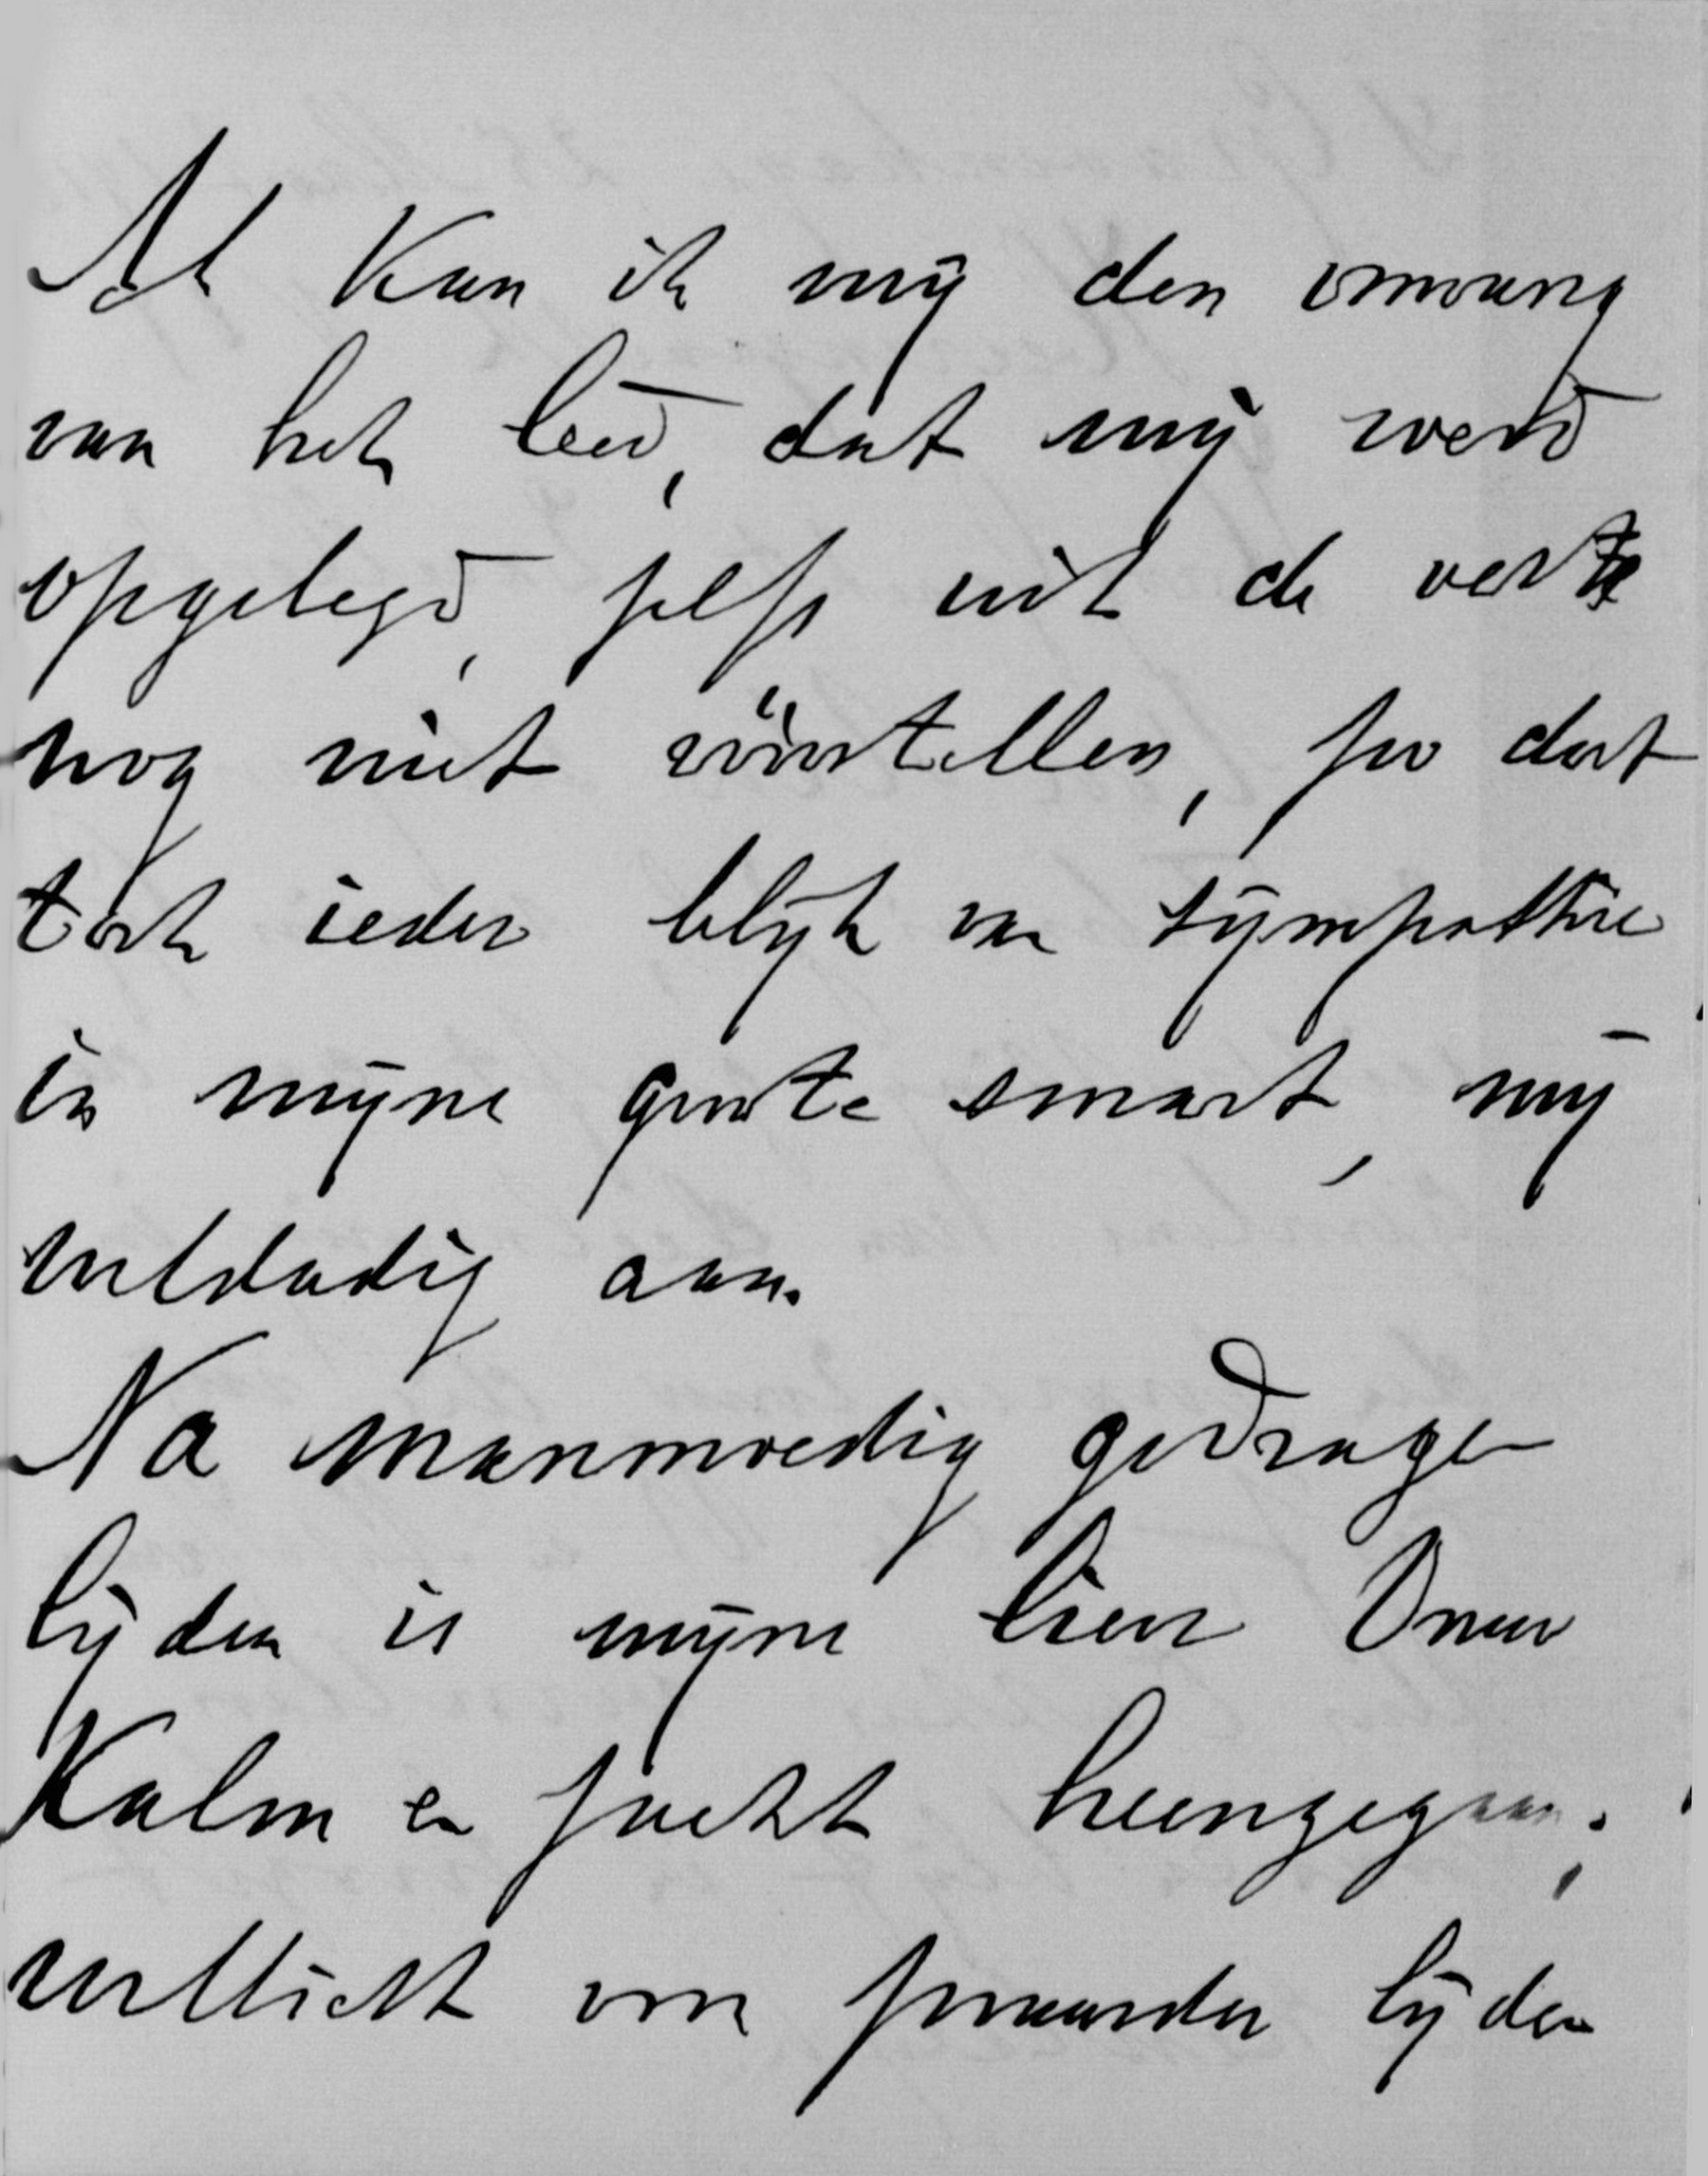 Al kan ik mij den omvang
van het leed, dat mij werd
opgelegd, zelfs uit de verte
nog niet vóórstellen, zoo dat
toch ieder blijk van sympathie
in mijne groote smart, mij
weldadig aan.
Na manmoedig gedragen
lijden is mijne lieve Vrouw
Kalm en zacht heengegaan;
wellicht voor zwaarder lijden